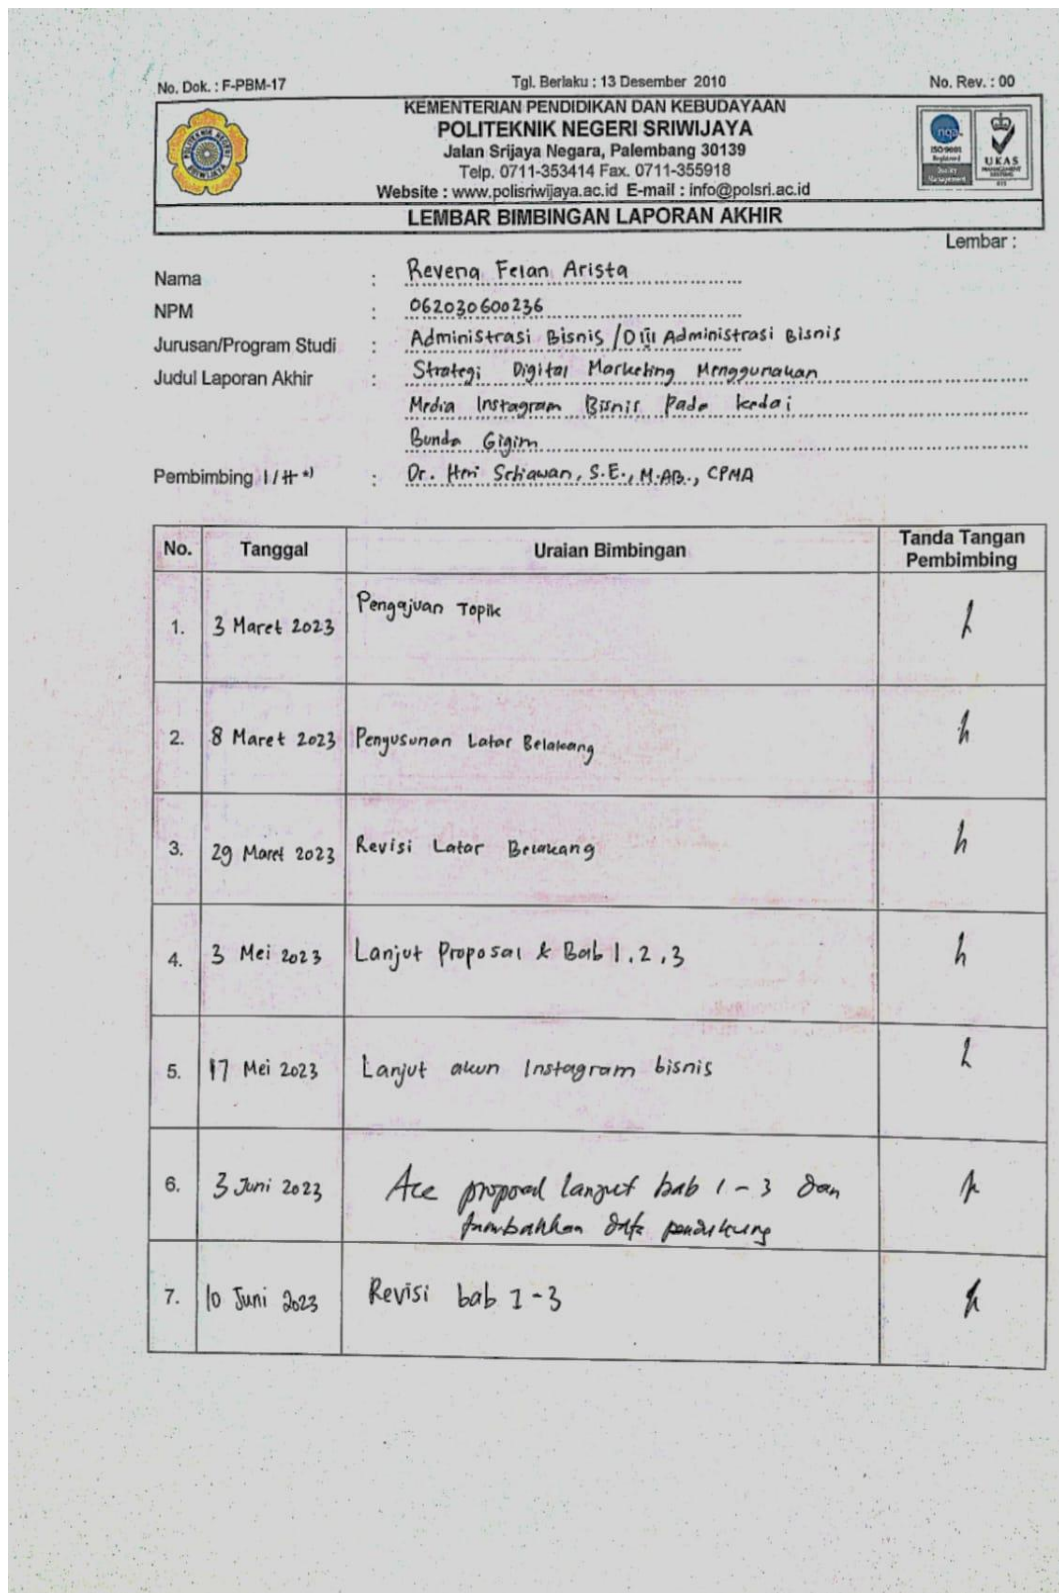 No. Dok. : F-PBM-17
Tgl. Berlaku : 13 Desember 2010
No. Rev. : 00
KEMENTERIAN PENDIDIKAN DAN KEBUDAYAAN
POLITEKNIK NEGERI SRIWIJAYA
Jalan Srijaya Negara, Palembang 30139
Telp. 0711-353414 Fax. 0711-355918
Website : www.polisriwijaya.ac.id E-mail : info@polsri.ac.id
POLITEKNIK NEGERI SRIWIJAYA
nqa.
ISO 9001
Registered
Quality
Management
UKAS
MANAGEMENT
SYSTEMS
LEMBAR BIMBINGAN LAPORAN AKHIR
Lembar :
Nama : Revena Felan Arista
NPM : 062030600236
Jurusan/Program Studi : Administrasi Bisnis / DIII Administrasi Bisnis
Judul Laporan Akhir : Strategi Digital Marketing Menggunakan
Media Instagram Bisnis Pada Kedai
Bunda Gigim
Pembimbing I / II *) : Dr. Heri Setiawan, S.E., M.AB., CPMA
No. Tanggal Uraian Bimbingan Tanda Tangan Pembimbing
1. 3 Maret 2023 Pengajuan Topik
2. 8 Maret 2023 Penyusunan Latar Belakang
3. 29 Maret 2023 Revisi Latar Belakang
4. 3 Mei 2023 Lanjut Proposal & Bab 1, 2, 3
5. 17 Mei 2023 Lanjut akun Instagram bisnis
6. 3 Juni 2023 Acc proposal lanjut bab 1 - 3 dan
tambahkan data pendukung
7. 10 Juni 2023 Revisi bab 1 - 3